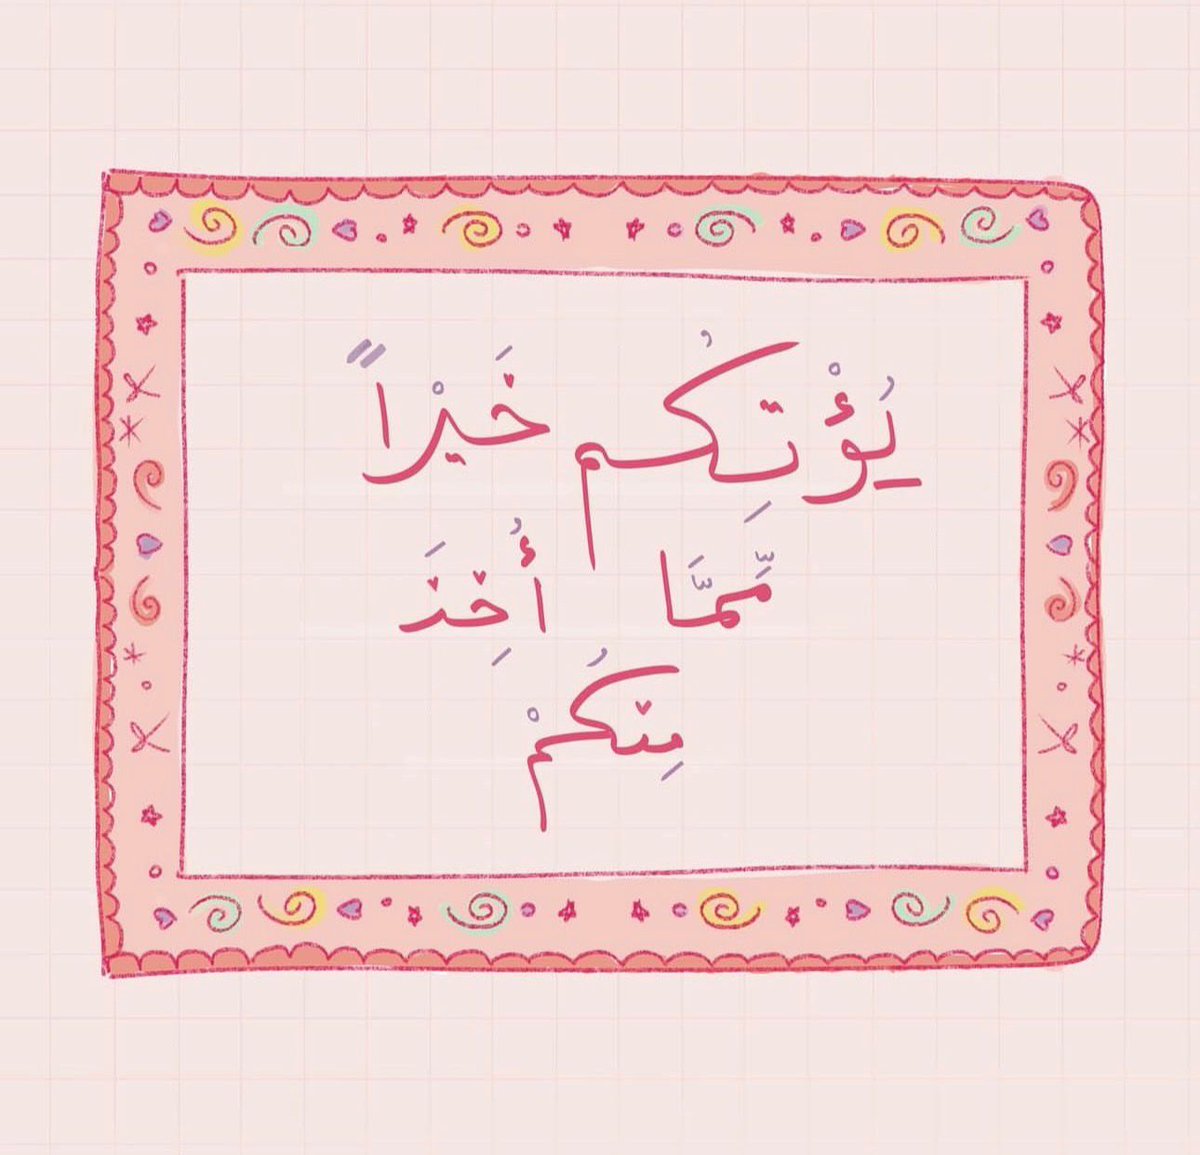 يُؤْتِكُم خَيْراً
مِّمَّا أُخِذَ
مِنكُمْ